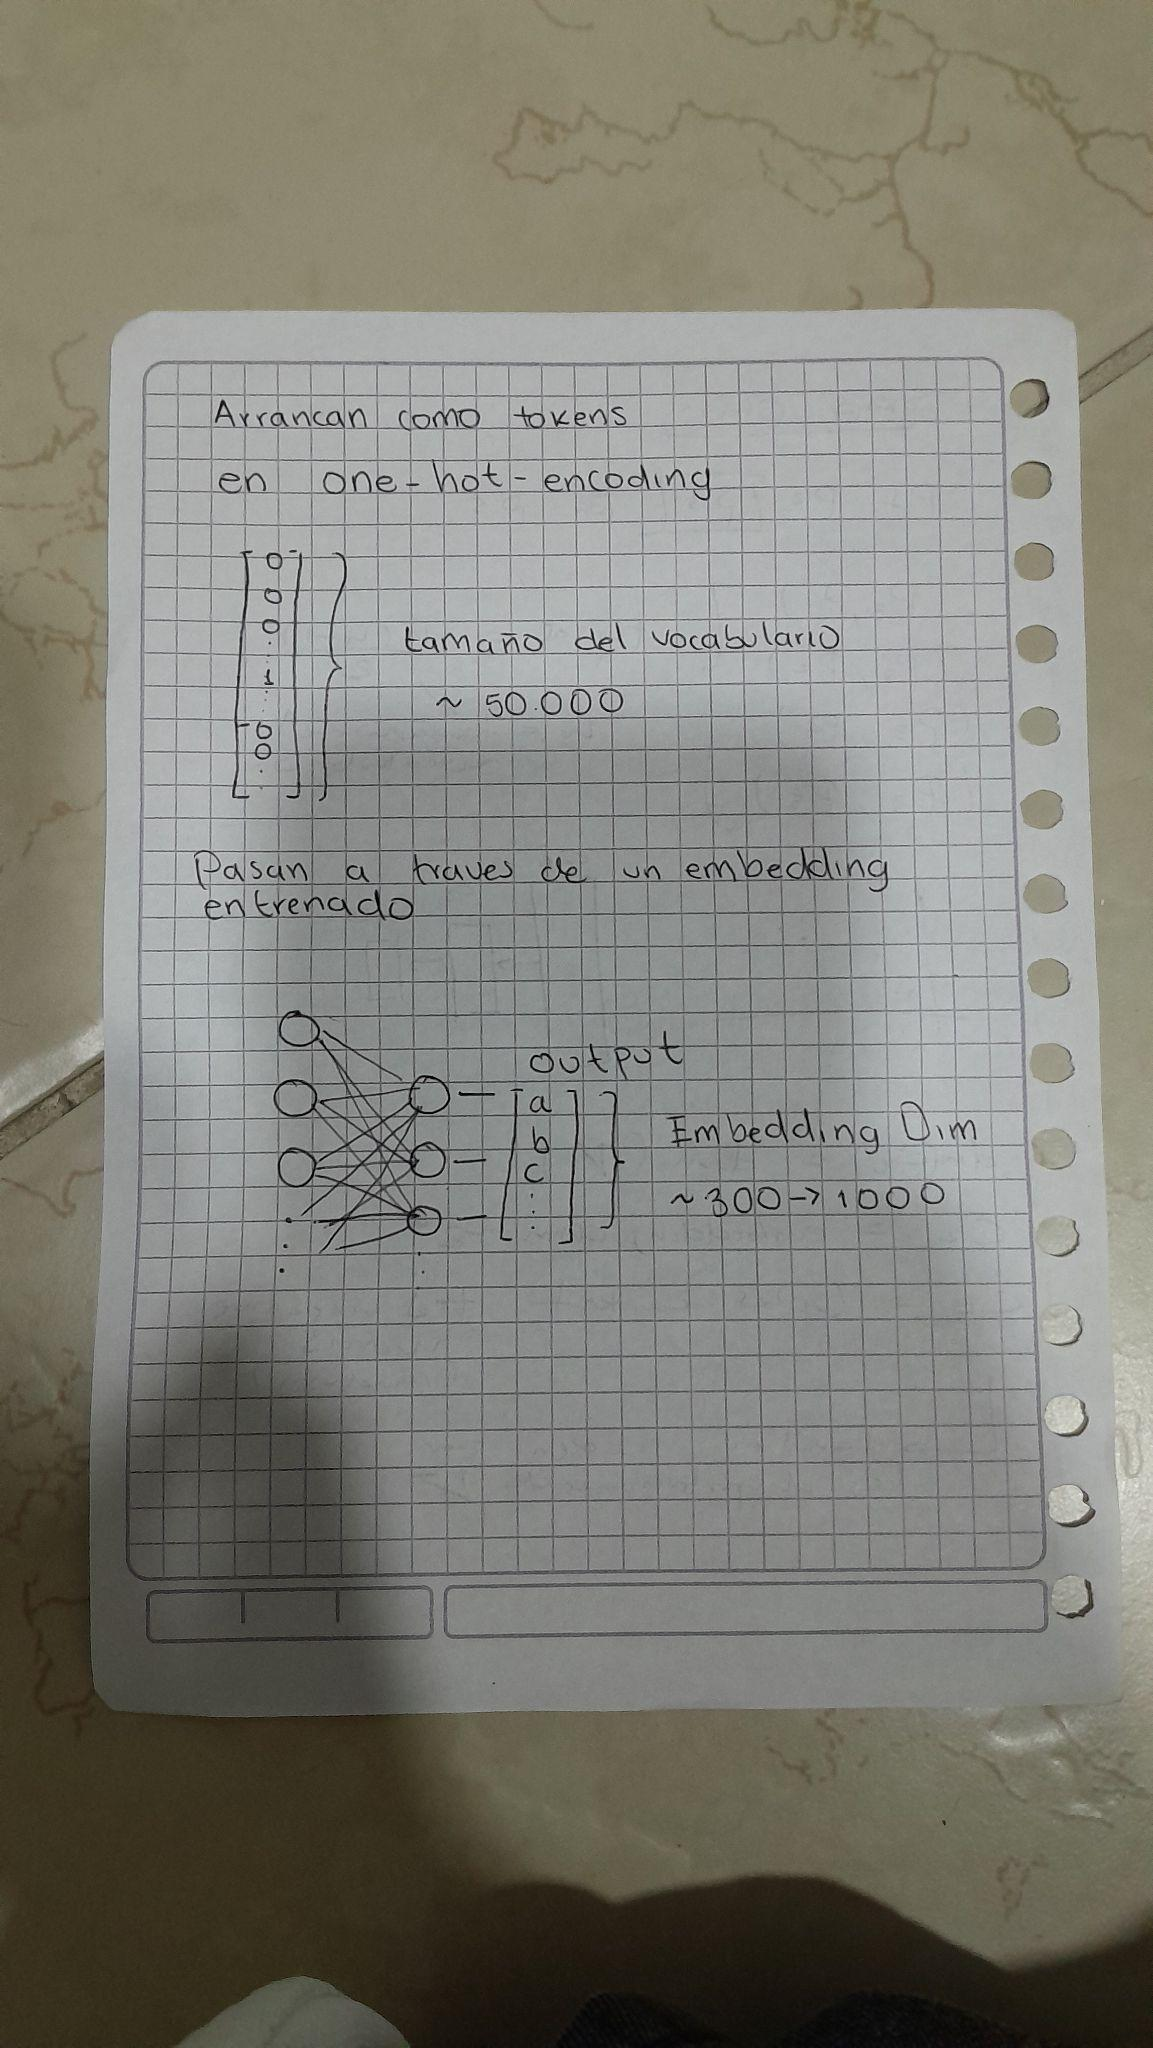 Arrancan como tokens
en one-hot-encoding
0
0
0
.
1
.
0
0
.
tamaño del vocabulario
~ 50.000
Pasan a traves de un embedding
entrenado
output
a
b
c
:
:
Embedding Dim
~300→1000